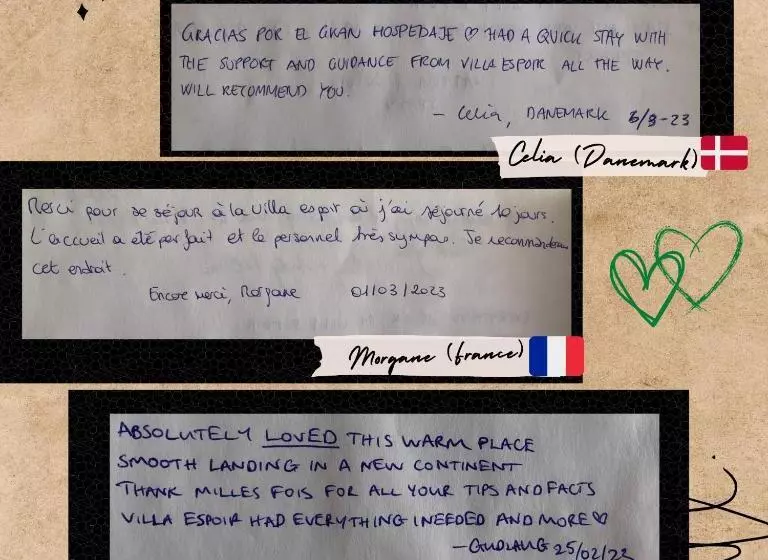 GRACIAS POR EL GRAN HOSPEDAJE ♡ HAD A QUICK STAY WITH
THE SUPPORT AND GUIDANCE FROM VILLA ESPOIR ALL THE WAY.
WILL RECOMMEND YOU.
— Celia, DANEMARK 3/3-23
Celia (Danemark)
Merci pour se séjour à la villa espoir où j'ai séjourné 10 jours.
L'accueil a été parfait et le personnel très sympas. Je recommande
cet endroit.
Encore merci, Morgane 01/03/2023
Morgane (france)
ABSOLUTELY LOVED THIS WARM PLACE
SMOOTH LANDING IN A NEW CONTINENT
THANK MILLES FOIS FOR ALL YOUR TIPS AND FACTS
VILLA ESPOIR HAD EVERYTHING I NEEDED AND MORE ♡
—GUDLAUG 25/02/23